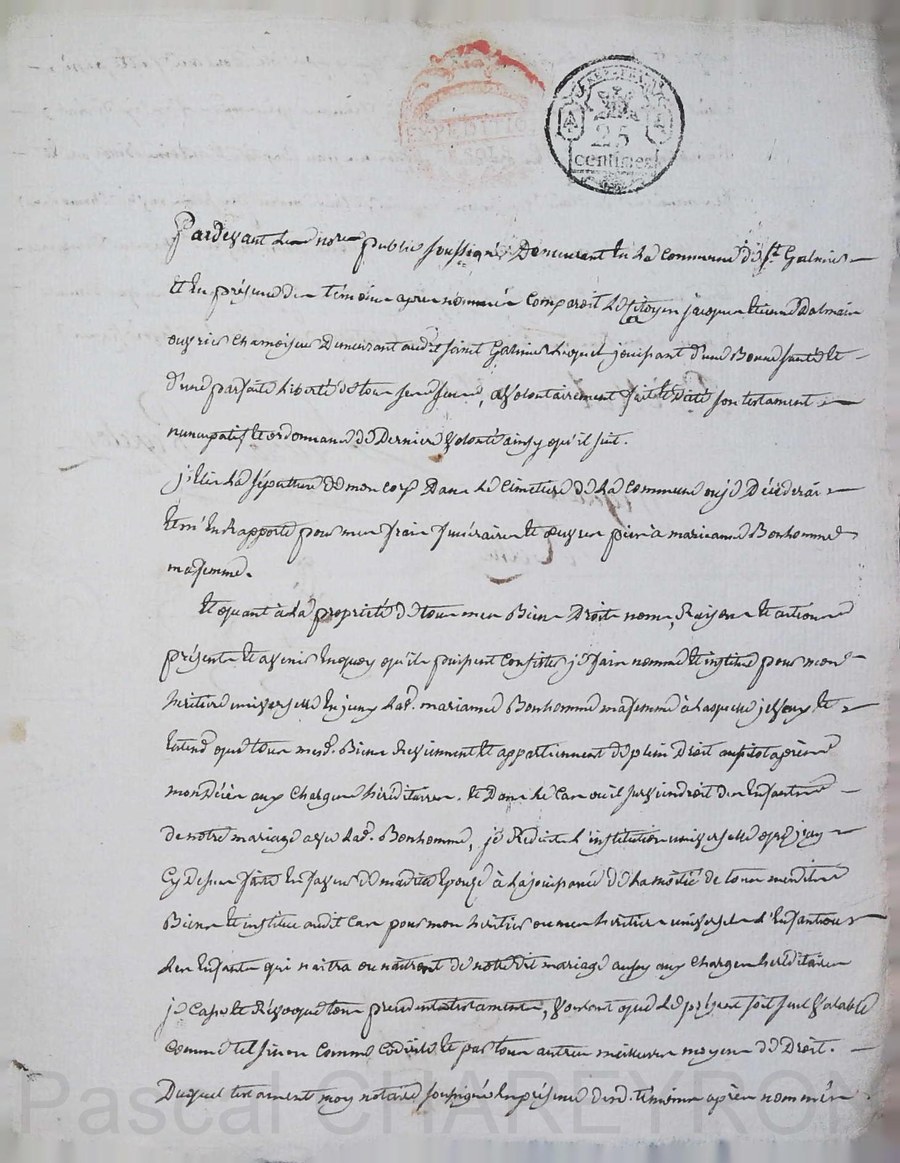 EXPEDITIO
SOLS
REP. FRA
25
centimes
Pardevant Le no.re public soussigné Demeurant En La Commune de St Galmier
Et En présence des témoins apres nommés Comparoit Le Citoyen jacques Etienne Dalmais
ouvrier chamoiseur Demeurant audit saint Galmier Lequel jouissant d'une Bonne santé Et
d'une parfaite Liberté de tous ses sens, a volontairement fait Et dicté son testament
nuncupatif Et ordonnance de Derniere volonté ainsy qu'il suit.
j'Elis La sépulture de mon corps Dans Le Cimetiere de La Commune ou je Décéderai
Et m'En Rapporte pour mes frais funéraires Et œuvres pies à marianne Bonhomme
ma femme.
Et quant à La propriété de tous mes Biens Droits noms, Raisons Et actions
présents Et avenir En quoy qu'ils puissent Consister je fais nomme Et institue pour mon
héritiere universelle En jceux La d. marianne Bonhomme ma femme à Laquelle je veux Et
Entend que tous mesd. Biens Reviennent Et appartiennent de plein Droit aussitot après
mon Décès aux Charges héréditaires. Et Dans Le Cas ou il surviendroit des Enfants
de notre mariage avec La d. Bonhomme, je Reduit L'institution universelle que j'ay
Cy dessus faite En faveur de madite Epouse à La jouissance de La moitié de tous mesdits
Biens Et institue audit Cas pour mon héritier ou mes héritiers universels L'Enfant ou
Les Enfants qui naitra ou naitront de notre dit mariage aussy aux Charges héréditaires
je Casse Et Révoque tous précédents testaments, voulant que Le présent soit seul valable
Comme tel sinon Comme Codicile Et par tous autres meilleurs moyens de Droit.
Duquel testament moy notaire soussigné En présence desd. témoins après nommés
Pascal CHAREYRON